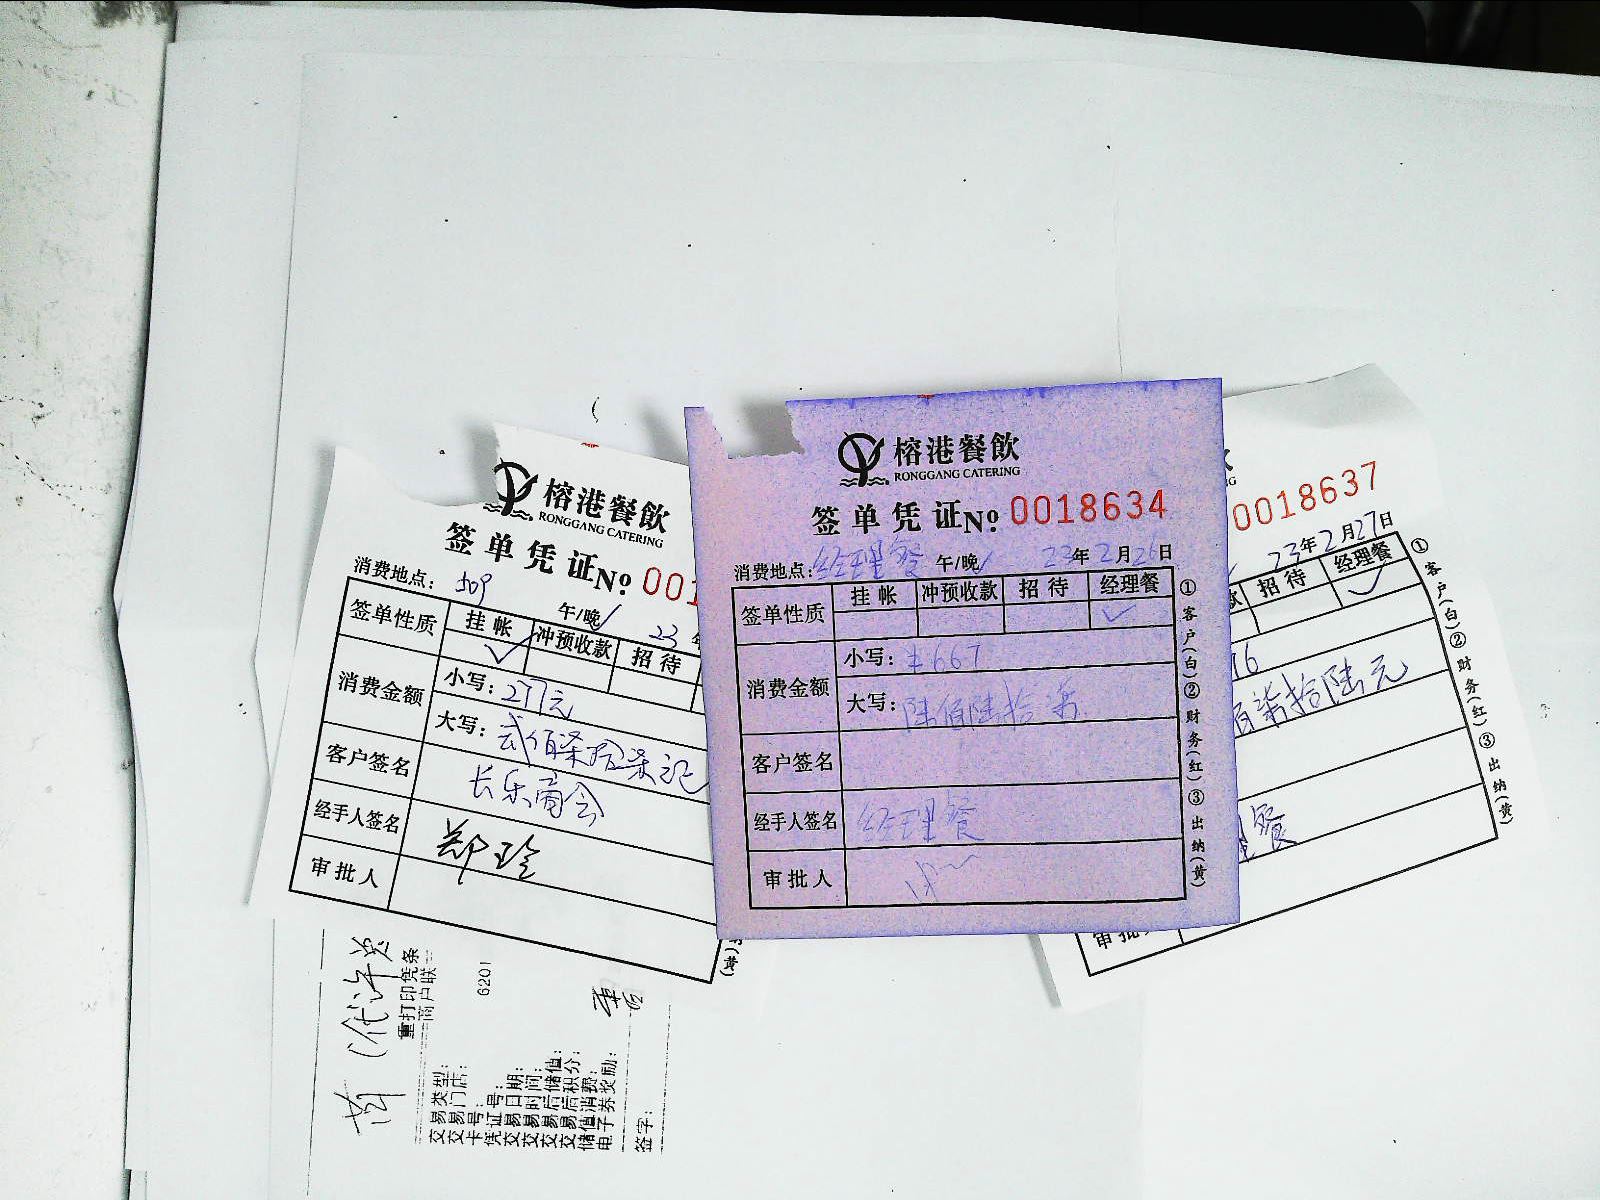 榕港餐飲
RONGGANG CATERING
签单凭证No. 001
消费地点: 午/晚 23年
签单性质 挂帐 冲预收款 招待
消费金额 小写: 277元
大写: 贰佰柒拾柒元
客户签名 长乐商会
经手人签名 郑玲
审批人
(黄)
榕港餐飲
RONGGANG CATERING
签单凭证No. 0018634
消费地点: 经理餐 午/晚 23年2月26日
签单性质 挂帐 冲预收款 招待 经理餐
消费金额 小写: ¥667
大写: 陆佰陆拾柒
客户签名
经手人签名 经理餐
审批人
①客户(白)②财务(红)③出纳(黄)
0018637
23年2月27日
款 招待 经理餐
76
佰柒拾陆元
餐
审批
①客户(白)②财务(红)③出纳(黄)
重打印凭条
商户联
交易类型:
交易门店:
卡号:
6201
凭证号:
交易日期:
交易时间:
交易后储值:
交易后积分:
储值消费:
电子券奖励:
签字: